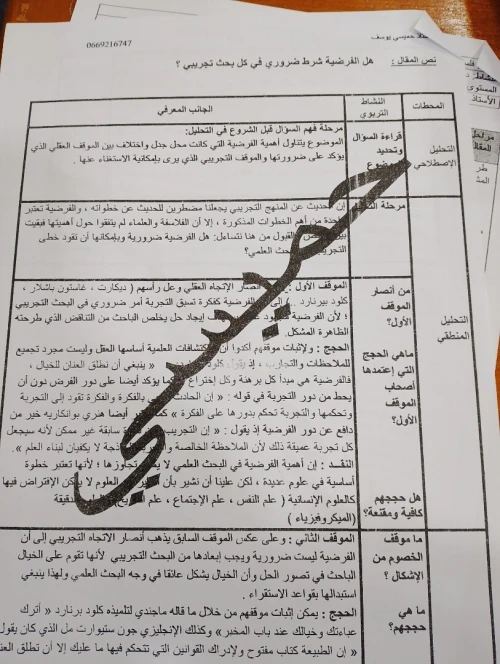 خميسي يوسف
0669216747
نص المقال : هل الفرضية شرط ضروري في كل بحث تجريبي ؟
المحطات
النشاط التربوي
الجانب المعرفي
التحليل الإصطلاحي
قراءة السؤال وتحديد
مرحلة فهم السؤال قبل الشروع في التحليل:
الموضوع يتناول أهمية الفرضية التي كانت محل جدل واختلاف بين الموقف العقلي الذي
يؤكد على ضرورتها والموقف التجريبي الذي يرى بإمكانية الاستغناء عنها .
مرحلة
إن الحديث عن المنهج التجريبي يجعلنا مضطرين للحديث عن خطواته ، والفرضية تعتبر
واحدة من أهم الخطوات المذكورة ، إلا أن الفلاسفة والعلماء لم يتفقوا حول أهميتها فبقيت
والقبول من هنا نتساءل: هل الفرضية ضرورية وبإمكانها أن تقود خطى
العلمي؟
التحليل المنطقي
من أنصار
الموقف
الأول؟
الموقف الأول : أنصار الإتجاه العقلي وعل رأسهم ( ديكارت ، غاستون باشلار ،
كلود بيرنارد ..) الفرضية كفكرة تسبق التجربة أمر ضروري في البحث التجريبي
؛ لأن الفرضية إيجاد حل يخلص الباحث من التناقض الذي طرحته
الظاهرة المشكل.
ماهي الحجج
التي إعتمدها
أصحاب
الموقف
الأول؟
الحجج : ولإثبات موقفهم أكدوا الاكتشافات العلمية أساسها العقل وليست مجرد تجميع
للملاحظات والتجارب ، إذ يقول كلود « ينبغي أن نطلق العنان للخيال ،
فالفرضية هي مبدأ كل برهنة وكل إختراع كما يؤكد أيضا على دور الفرض دون أن
يحط من دور التجربة في قوله : « إن الحادث بالفكرة والفكرة تقود إلى التجربة
وتحكمها والتجربة تحكم بدورها على الفكرة » أيضا هنري بوانكاريه خير من
دافع عن دور الفرضية إذ يقول : « إن التجريب سابقة غير ممكن لأنه سيجعل
كل تجربة عميقة ذلك لأن الملاحظة الخالصة لا يكفيان لبناء العلم ».
هل حججهم
كافية ومقنعة؟
النقـد : إن أهمية الفرضية في البحث العلمي لا تجاوزها ؛ لأنها تعتبر خطوة
أساسية في علوم عديدة ، لكن علينا أن نشير بأن العلوم لا يمكن الإفتراض فيها
كالعلوم الإنسانية ( علم النفس ، علم الإجتماع ، علم الدقيقة
(الميكروفيزياء )
ما موقف
الخصوم من
الإشكال ؟
الموقف الثاني : وعلى عكس الموقف السابق يذهب أنصار الاتجاه التجريبي إلى أن
الفرضية ليست ضرورية ويجب إبعادها من البحث التجريبي لأنها تقوم على الخيال
الباحث في تصور الحل وأن الخيال يشكل عائقا في وجه البحث العلمي ولهذا ينبغي
استبدالها بقواعد الاستقراء .
ما هي
حججهم؟
الحجج : يمكن إثبات موقفهم من خلال ما قاله ماجندي لتلميذه كلود برنارد « أترك
عباءتك وخيالك عند باب المخبر » وكذلك الإنجليزي جون ستيوارت مل الذي كان يقول
« إن الطبيعة كتاب مفتوح ولإدراك القوانين التي تتحكم فيها ما عليك إلا أن تطلق
خميسي